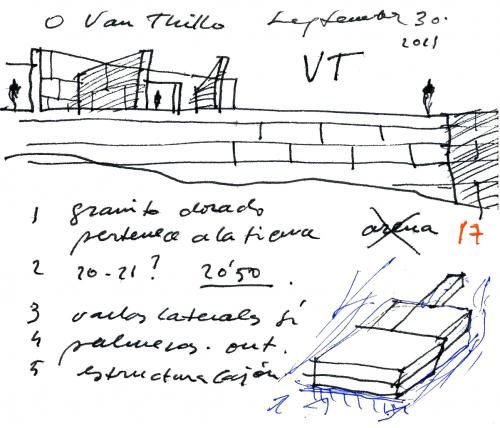 O Van Thillo September 30.
2021
VT
1 granito dorado
pertenece a la tierra arena 17
2 20-21? 20'50
3 vuelos laterales sí
4 palmeras. out.
5 estructura cajón